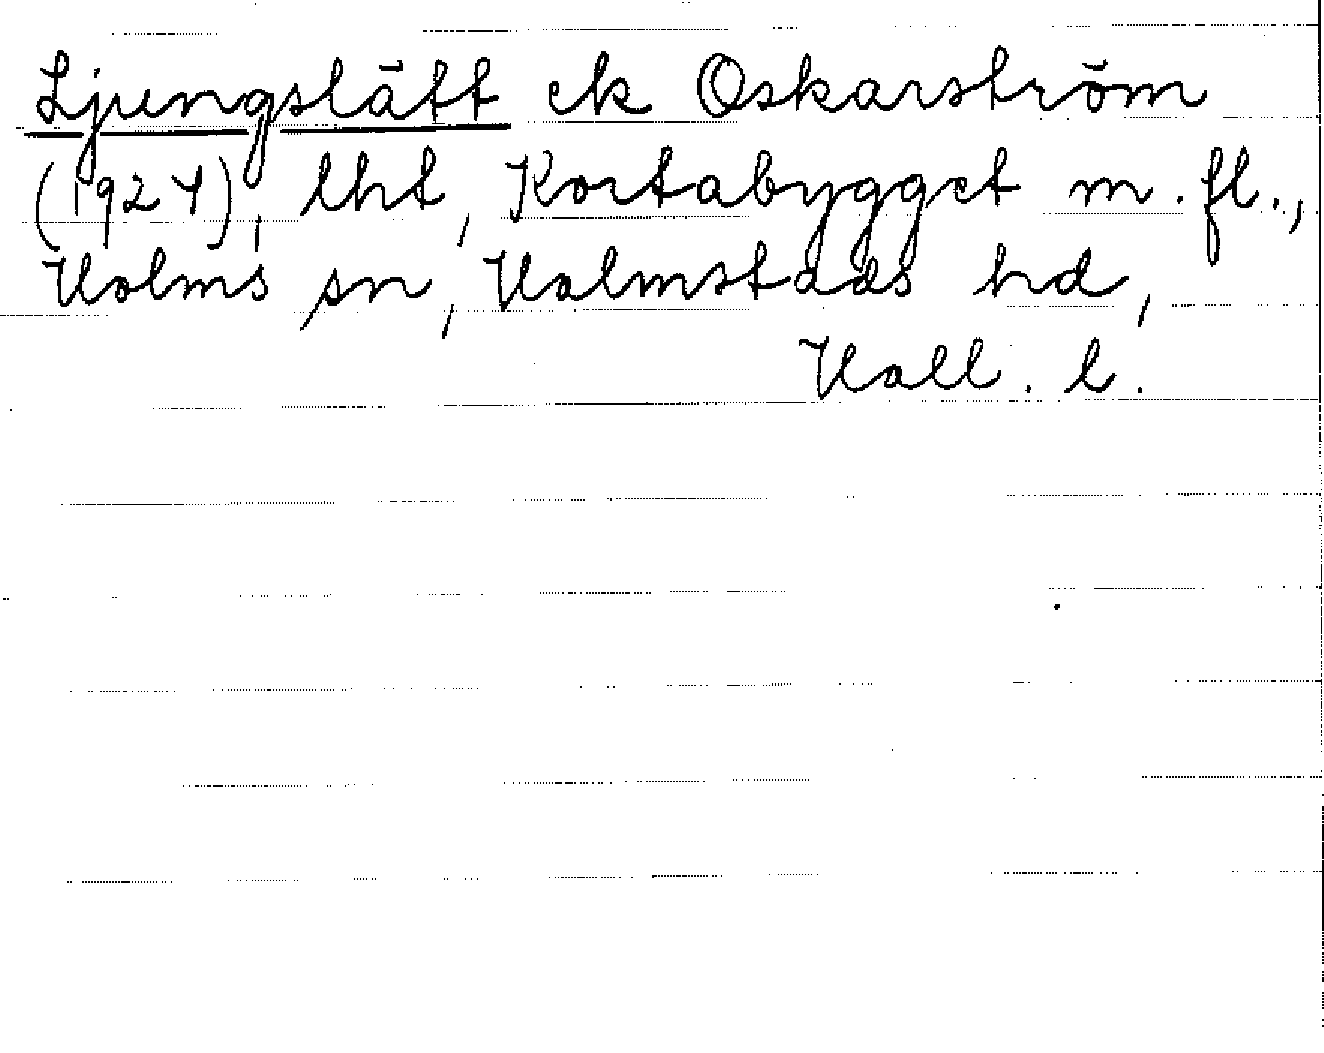 Ljungslätt ek Oskarström
(1927), lht, Kortabygget m. fl.,
Holms sn, Halmstads hd,
Hall. l.